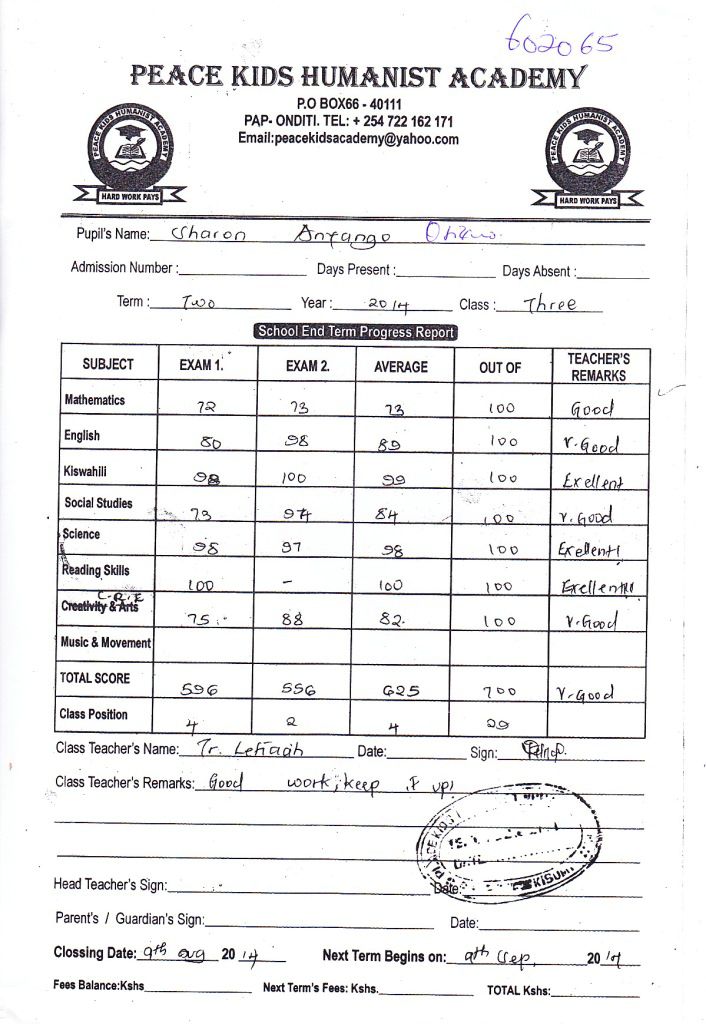 602065
PEACE KIDS HUMANIST ACADEMY
P.O BOX66 - 40111
PAP- ONDITI. TEL: + 254 722 162 171
Email:peacekidsacademy@yahoo.com
PEACE KIDS HUMANIST ACADEMY
HARD WORK PAYS
PEACE KIDS HUMANIST ACADEMY
HARD WORK PAYS
Pupil's Name: Sharon Anyango
Admission Number : Days Present : Days Absent :
Term : Two Year : 2014 Class : Three
School End Term Progress Report
SUBJECT EXAM 1. EXAM 2. AVERAGE OUT OF TEACHER'S REMARKS
Mathematics 72 73 73 100 Good
English 80 98 89 100 V. Good
Kiswahili 98 100 99 100 Exellent
Social Studies 73 94 84 100 V. Good
Science 98 97 98 100 Exellent!
Reading Skills 100 - 100 100 Exellent!!
C.R.E
Creativity & Arts 75 88 82 100 V. Good
Music & Movement
TOTAL SCORE 596 556 625 700 V. Good
Class Position 4 2 4 29
Class Teacher's Name: Tr. Date: Sign:
Class Teacher's Remarks: Good work; keep it up!
PEACE KIDS
KISUMU
Head Teacher's Sign: Date:
Parent's / Guardian's Sign: Date:
Clossing Date: 9th aug 2014 Next Term Begins on: 9th Sep. 2014
Fees Balance:Kshs Next Term's Fees: Kshs. TOTAL Kshs: